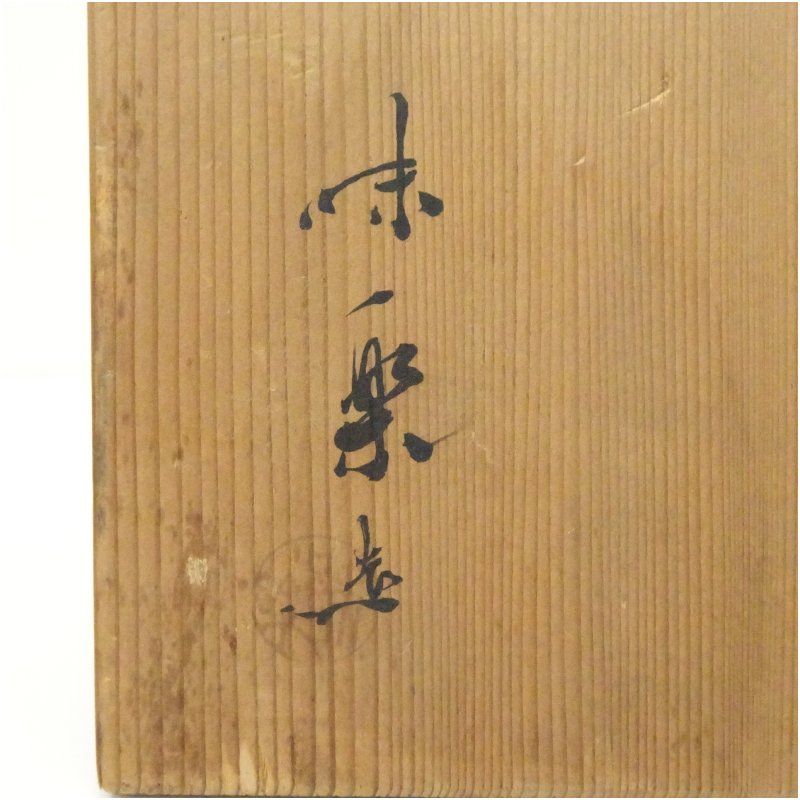 味楽造